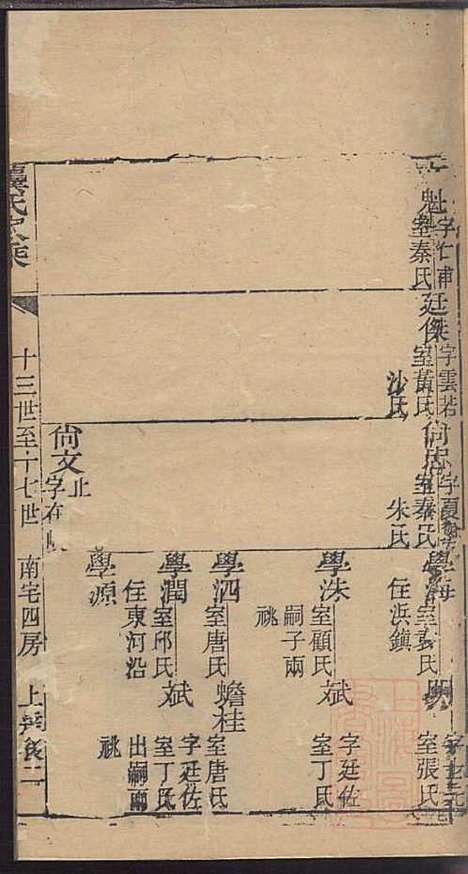 魁
字仁甫
室秦氏
廷傑
字雲若
室黃氏
沙氏
尙忠
字夏
室秦氏
朱氏
學海
室袁氏
住浜鎮
室張氏
學洙
室顧氏
嗣子兩
祧
斌
字廷佐
室丁氏
學泗
室唐氏
蟾桂
室唐氏
學潤
室邱氏
住東河沿
斌
字廷佐
室丁氏
出嗣兩
祧
尙文
止
字在
學源
十三世至十七世
南宅四房
上
二